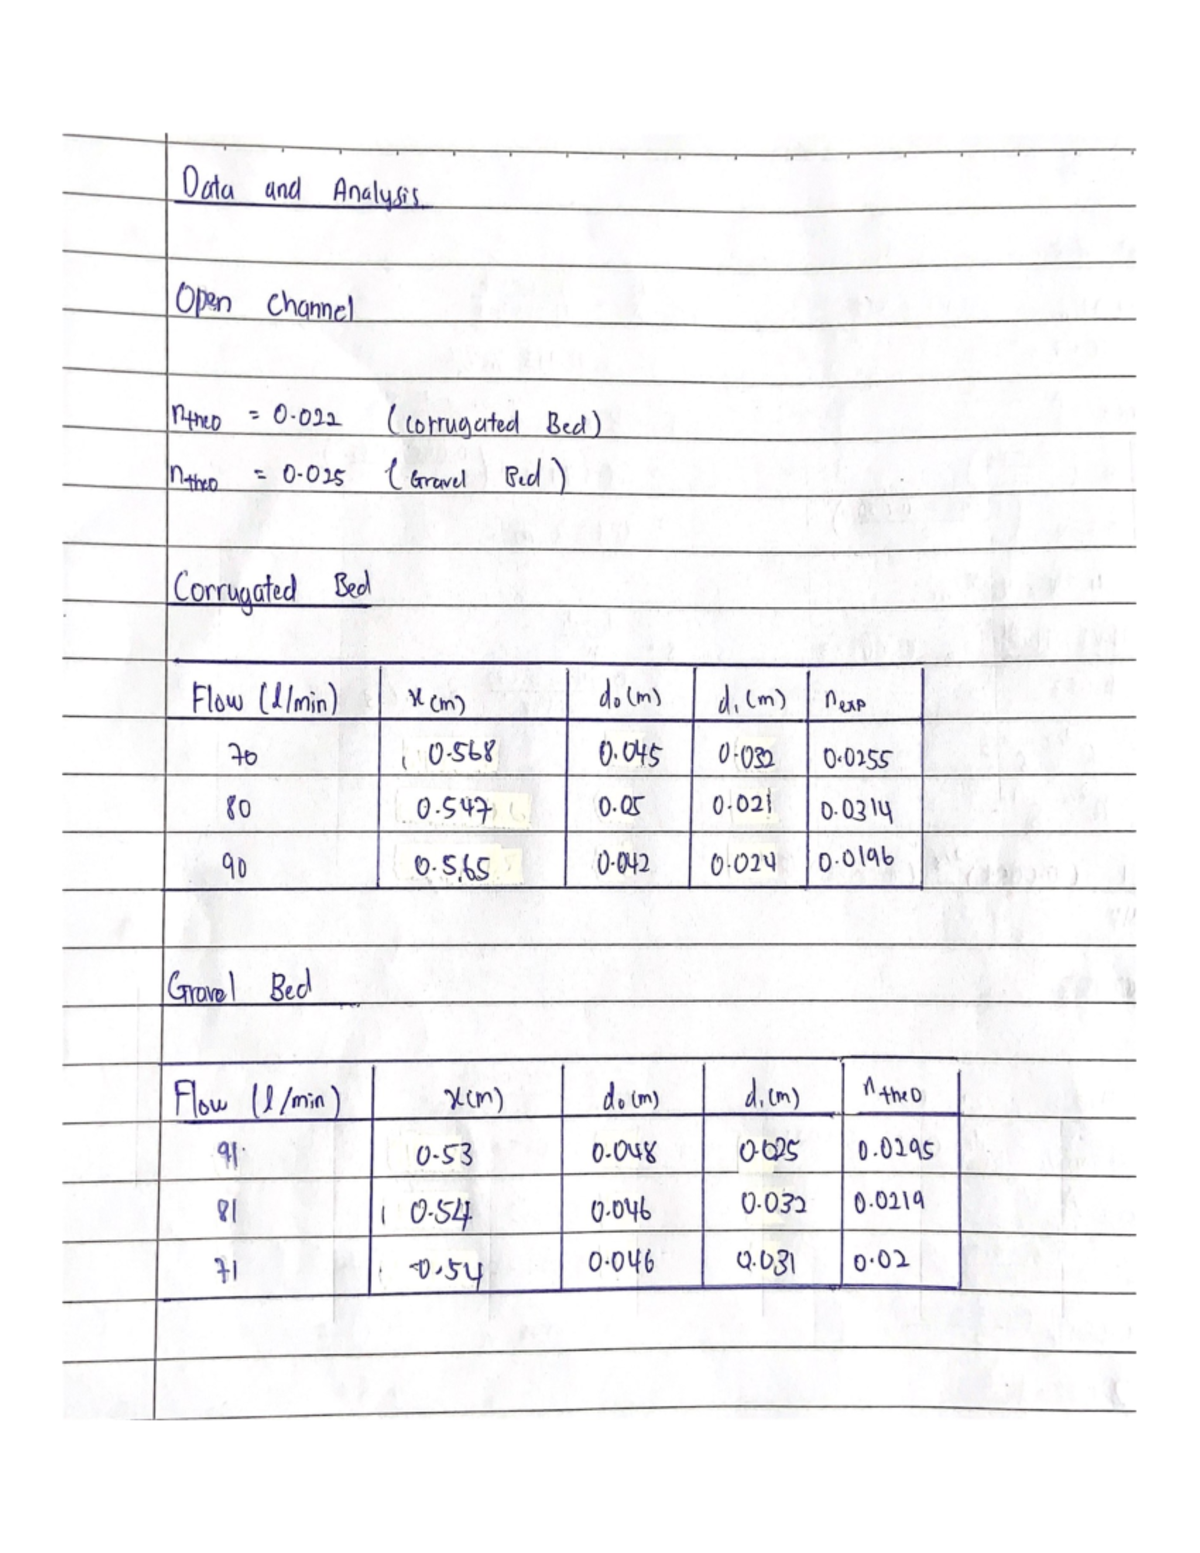 Data and Analysis
Open Channel
ntheo = 0.022 (Corrugated Bed)
ntheo = 0.025 (Gravel Bed)
Corrugated Bed
Flow (l/min) x (m) d₀ (m) d₁ (m) nexp
70 0.568 0.045 0.032 0.0255
80 0.547 0.05 0.021 0.0314
90 0.565 0.042 0.024 0.0196
Gravel Bed
Flow (l/min) x(m) d₀ (m) d₁ (m) ntheo
91 0.53 0.048 0.025 0.0295
81 0.54 0.046 0.032 0.0219
71 0.54 0.046 0.031 0.02